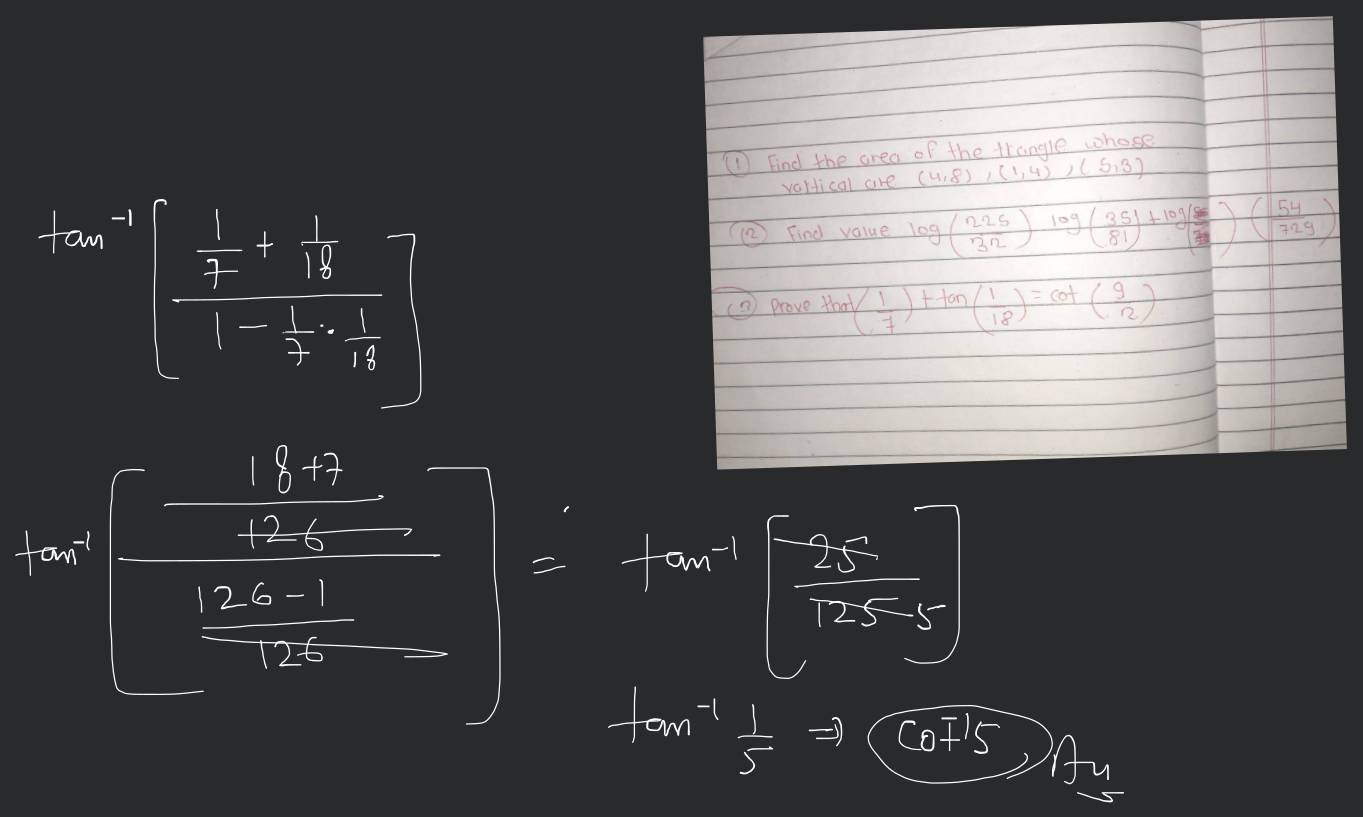 ① Find the area of the trangle whose
vartical are (4,8), (1,4), (5,3)
② Find value log (225/32) log (35/81) + log ( ) (54/729)
③ Prove that (1/7) + tan (1/18) = cot (9/2)
tan⁻¹ [ (1/7 + 1/18) / (1 - 1/7 · 1/18) ]
tan⁻¹ [ ((18+7)/126) / ((126-1)/126) ] = tan⁻¹ [ 25/125 5 ]
tan⁻¹ 1/5 ⇒ cot⁻¹5 Au